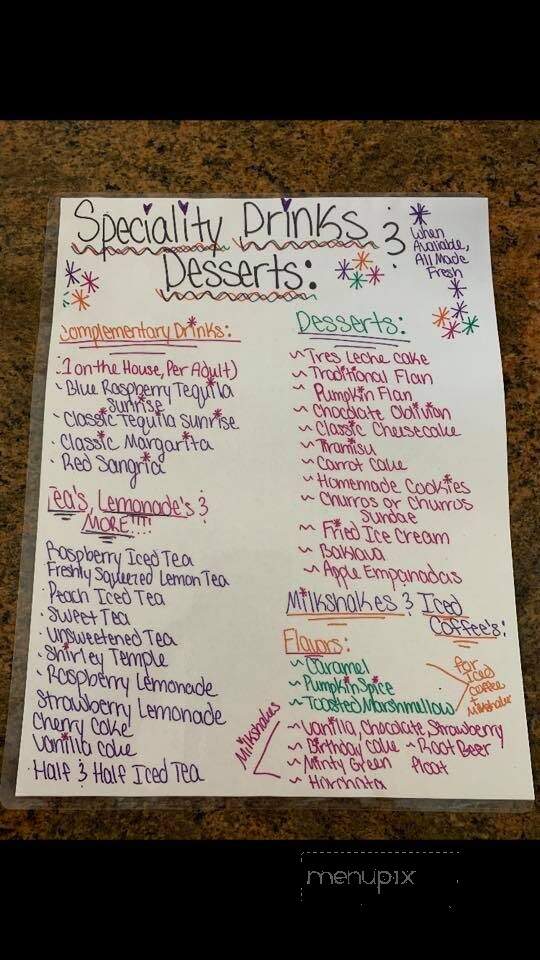 Speciality Drinks &
Desserts:
When
Available,
All Made
Fresh
Complementary Drinks:
1 on the House, Per Adult)
Blue Raspberry Tequila
Sunrise
Classic Tequila Sunrise
Classic Margarita
Red Sangria
Tea's, Lemonade's &
MORE!!!!
Raspberry Iced Tea
Freshly Squeezed Lemon Tea
Peach Iced Tea
Sweet Tea
Unsweetened Tea
Shirley Temple
Raspberry Lemonade
Strawberry Lemonade
Cherry Coke
Vanilla Coke
Half & Half Iced Tea
Desserts:
~ Tres Leche Cake
~ Traditional Flan
~ Pumpkin Flan
~ Chocolate Oblivian
~ Classic Cheesecake
~ Tiramisu
~ Carrot Cake
~ Homemade Cookies
~ Churros or Churros
Sundae
~ Fried Ice Cream
~ Baklava
~ Apple Empanadas
Milkshakes & Iced
Coffee's:
Flavors:
~ Caramel
~ Pumpkin Spice
~ Toasted Marshmellow
For
Iced
Coffee
+
Milkshakes
Milkshakes
~ Vanilla, Chocolate, Strawberry
~ Birthday Cake ~ Root Beer
~ Minty Green Float
~ Horchata
menupix